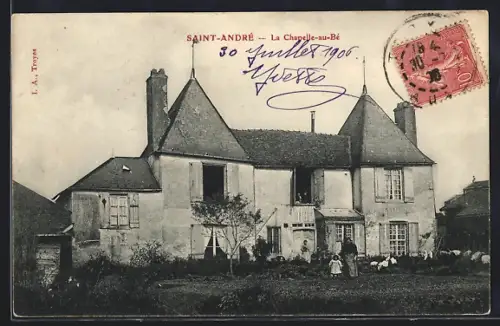 SAINT-ANDRÉ — La Chapelle-au-Bé
30 Juillet 1906
I. A., Troyes
10